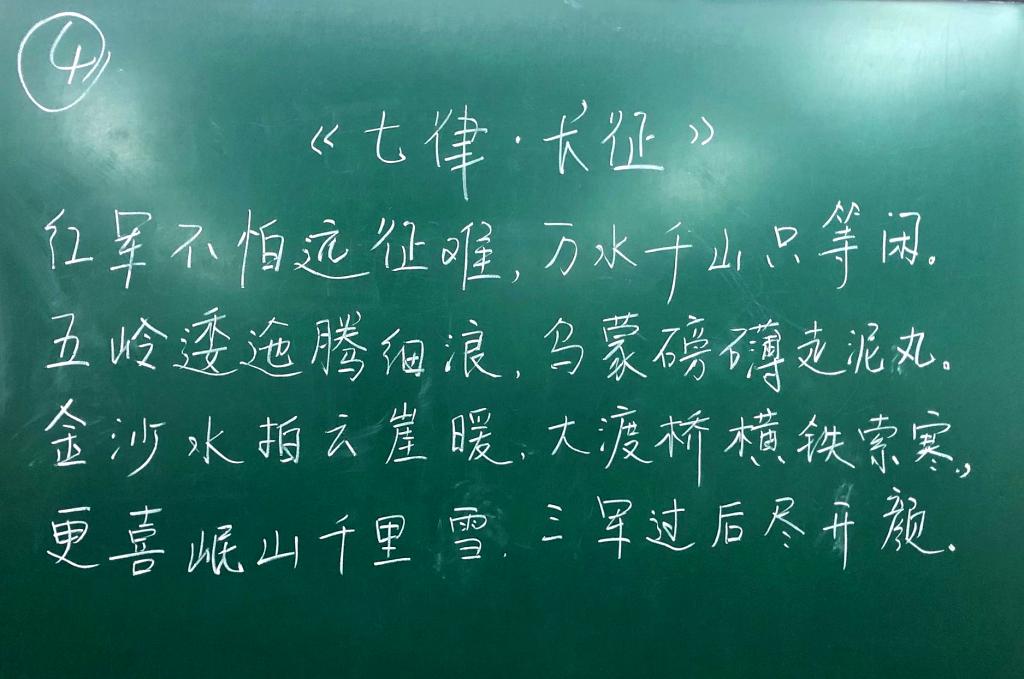 4
《七律·长征》
红军不怕远征难,万水千山只等闲。
五岭逶迤腾细浪,乌蒙磅礴走泥丸。
金沙水拍云崖暖,大渡桥横铁索寒,
更喜岷山千里雪,三军过后尽开颜。